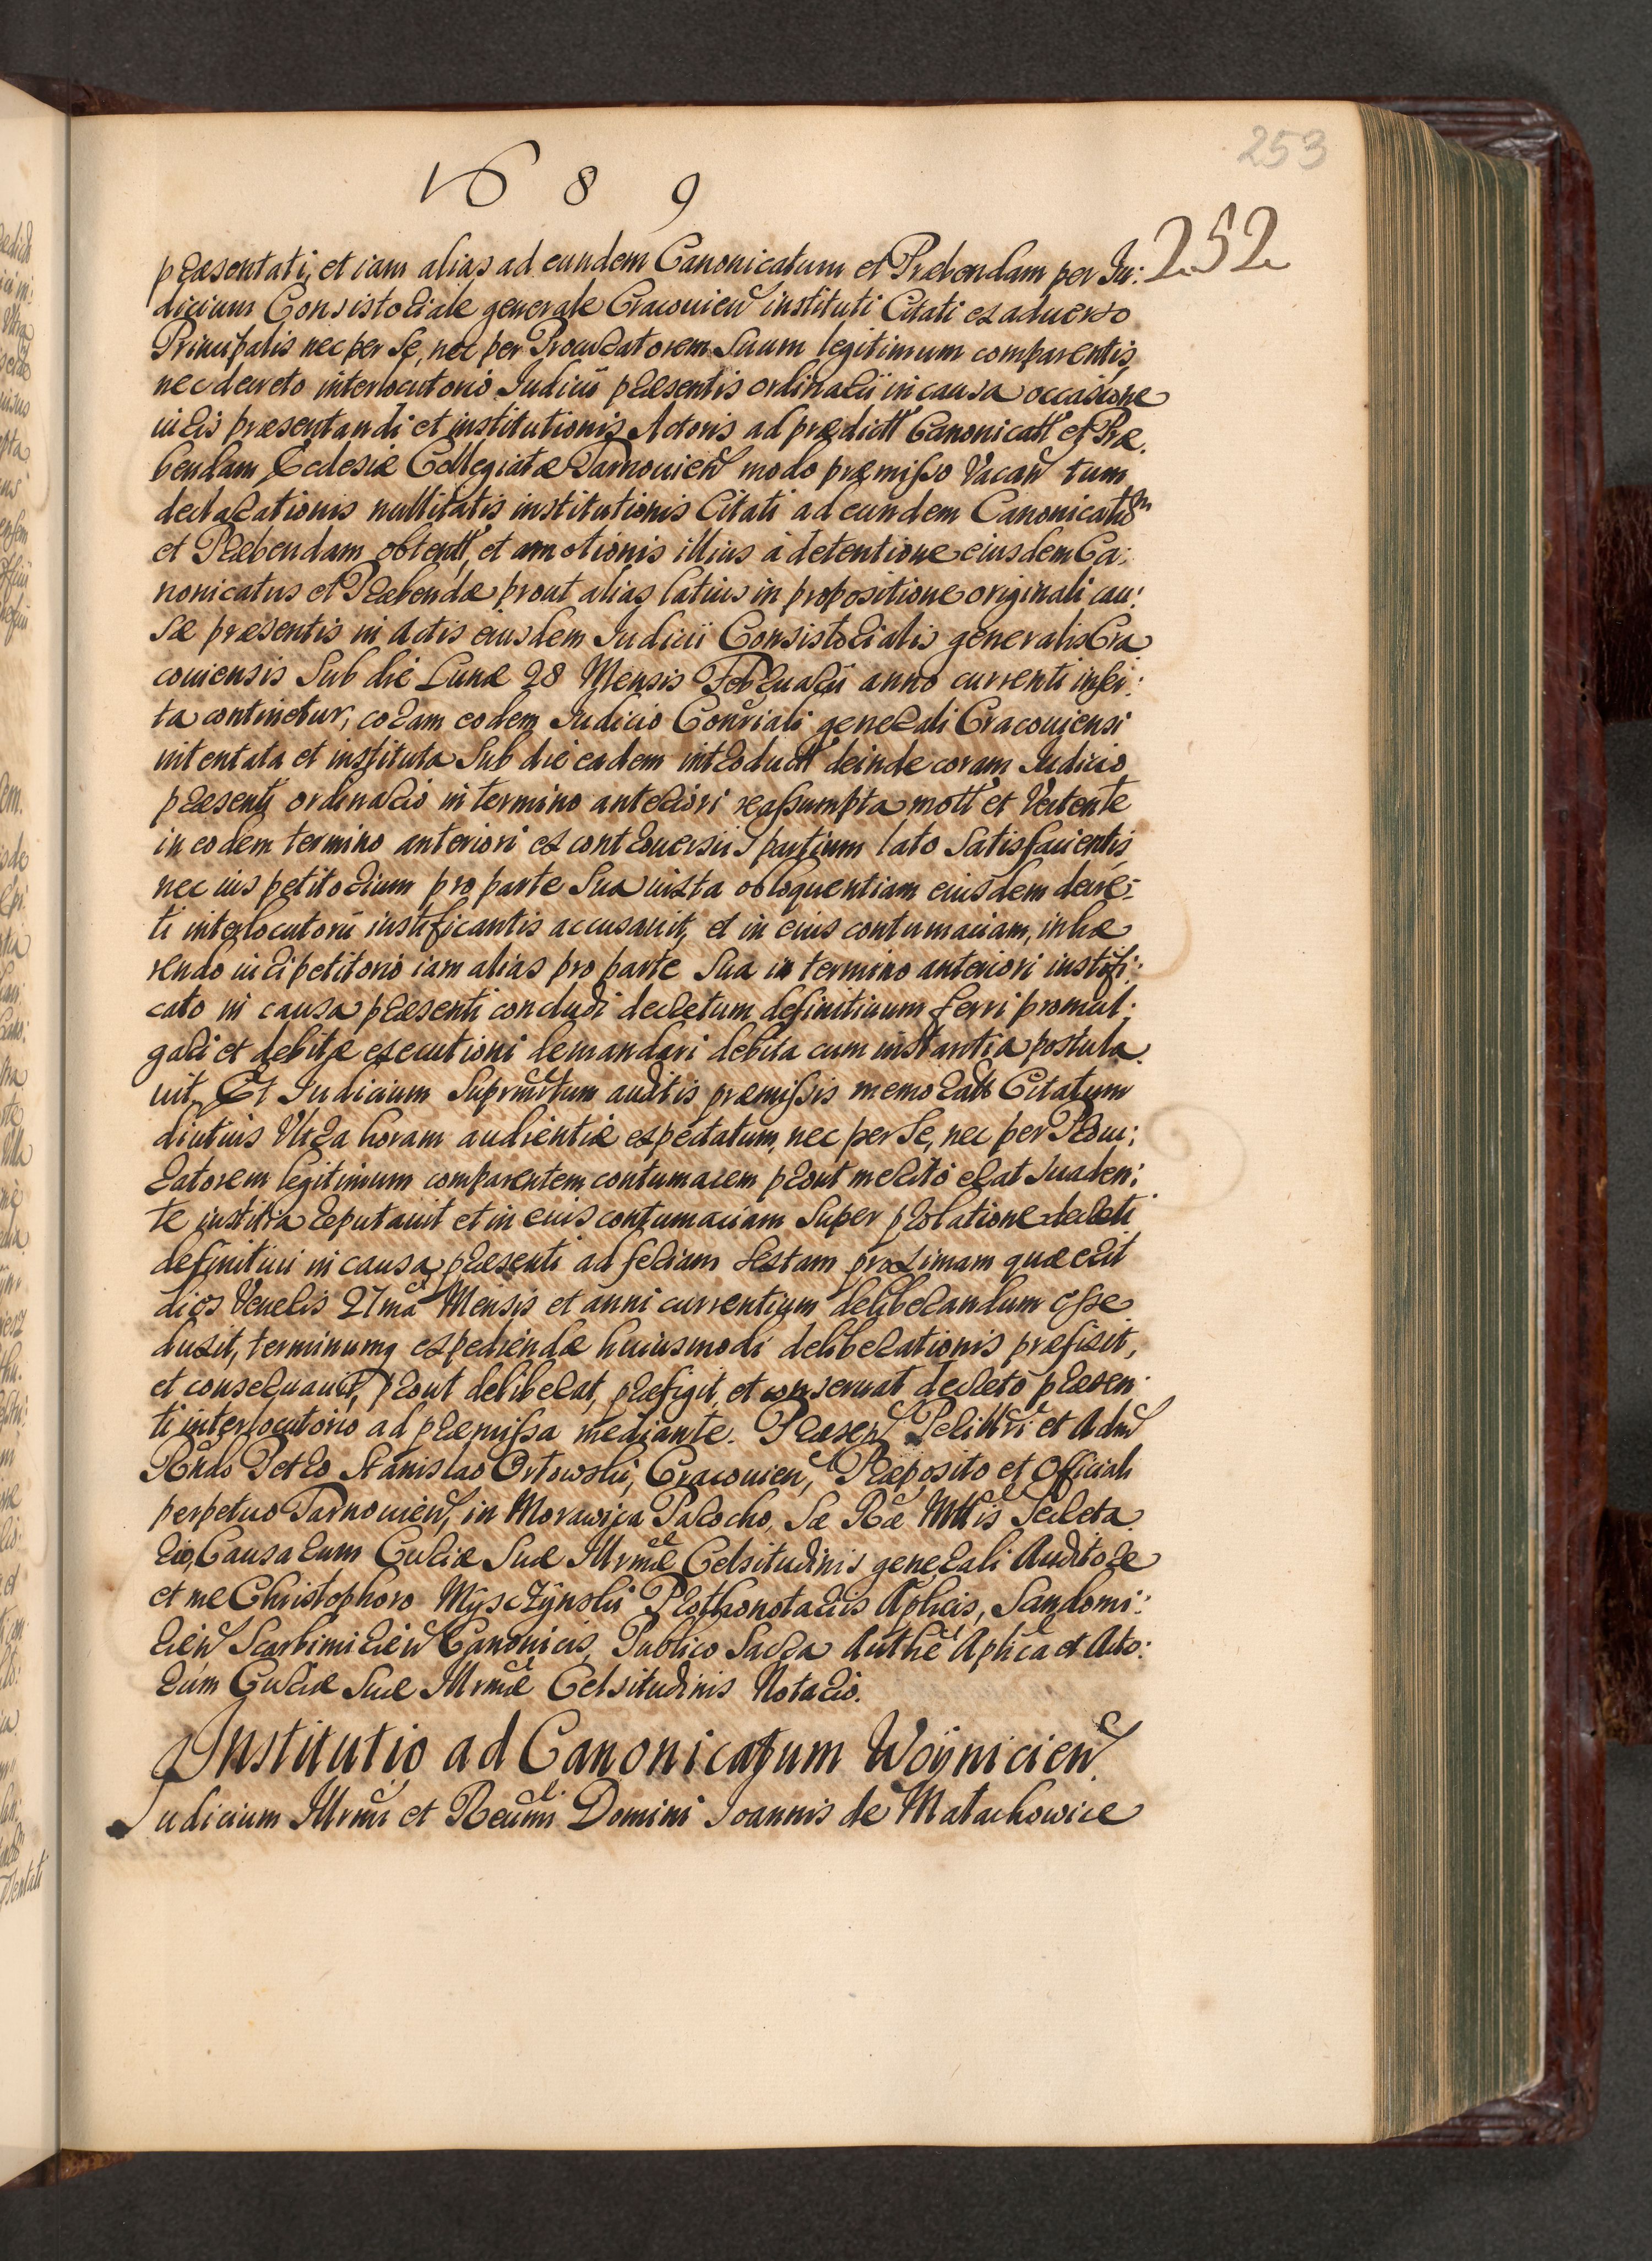 253
1689
252
præsentati, et iam alias ad eundem Canonicatum et Præbendam per Iu:
dicium Consistoriale generale Cracouien instituti Citati ex aduerso
Principalis nec per se, nec per Procuratorem Suum legitimum comparentis,
nec decreto interlocutorio Iudicii præsentis ordinarii in causa occasione
iuris præsentandi et institutionis Actoris ad prædictt Canonicatt et Præ:
bendam Ecclesiæ Collegiatæ Tarnouien modo præmisso Vacan tum
declarationis nullitatis institutionis Citati ad eundem Canonicatum
et Præbendam obtentt, et amotionis illius à detentione eiusdem Ca:
nonicatus et Præbendæ prout alias latius in propositione originali cau:
sæ præsentis in Actis eiusdem Iudicii Consistorialis generalis Cra
couiensis Sub die Lunæ 28 Mensis Februarii anno currenti inser:
ta continetur, coram eodem Iudicio Conriali generali Cracouiensi
intentata et instituta Sub die eadem introductt deinde coram Iudicio
præsenti ordinario in termino anteriori reassumpta mott et Vertente
in eodem termino anteriori ex controuersiis partium lato Satisfacientis,
nec ius petitorium pro parte Sua iuxta obloquentiam eiusdem decre:
ti interlocutorii iustificantis accusauit, et in eius contumaciam, inhæ
rendo iuri petitorio iam alias pro parte Sua in termino anteriori iustifi:
cato in causa præsenti concludi decretum definitiuum ferri promul:
gari et debitæ executioni demandari debita cum instantia postula
uit. Et Iudicium Suprascriptum auditis præmissis memoratt Citatum
diutius Vltra horam audientiæ expectatum, nec per Se, nec per Procu:
ratorem legitimum comparentem contumacem prout merito erat Suaden:
te iustitia reputauit et in eius contumaciam Super prolatione decreti
definitiui in causa præsenti ad feriam sextam proximam quæ erit
dies Veneris 27ma Mensis et anni currentium deliberandum esse
duxit, terminumq expediendæ huiusmodi deliberationis præfixit,
et conseruauit, prout deliberat, præfigit, et conseruat decreto præsen
ti interlocutorio ad præmissa mediante. Præsen Perillri et Adm
Rndo Petro Stanislao Orłowski, Cracouien, Præposito et Officiali
perpetuo Tarnouien, in Morawica Parocho, Sæ Ræ Mttis Secreta
rio, Causarum Curiæ Suæ Illrmæ Celsitudinis generali Auditore
et me Christophoro Mysczÿnski Prothonotariis Aplicis, Sandomi:
rien Scarbimirien Canonicis, Publico Sacra Authe Aplica et Acto:
rum Curiæ Suæ Illrmæ Celsitudinis Notario.
Institutio ad Canonicatum Woÿnicien
Iudicium Illrmi et Reumi Domini Ioannis de Małachowice